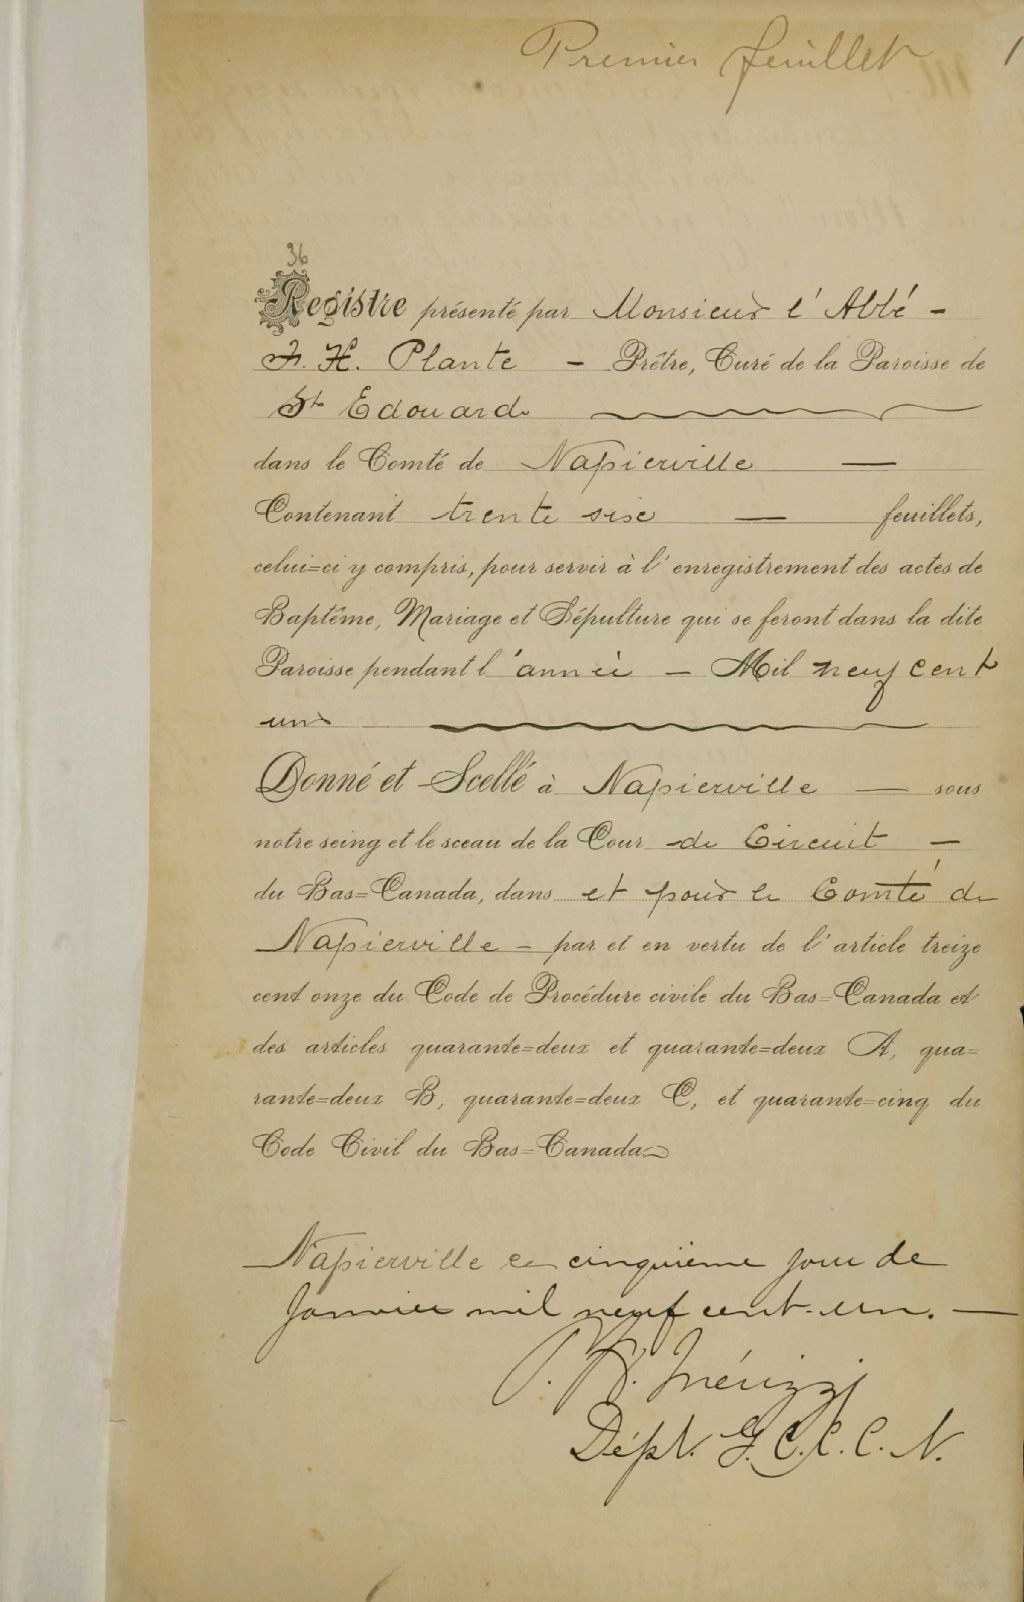 Premier feuillet 1
36
Registre présenté par Monsieur l'Abbé -
F. H. Plante - Prêtre, Curé de la Paroisse de
St Edouard
dans le Comté de Napierville —
Contenant trente six — feuillets,
celui=ci y compris, pour servir à l'enregistrement des actes de
Baptême, Mariage et Sépulture qui se feront dans la dite
Paroisse pendant l'année — Mil neuf cent
un
Donné et Scellé à Napierville — sous
notre seing et le sceau de la Cour de Circuit —
du Bas=Canada, dans et pour le Comté de
Napierville — par et en vertu de l'article treize
cent onze du Code de Procédure civile du Bas=Canada et
des articles quarante=deux et quarante=deux A, qua=
rante=deux B, quarante=deux C, et quarante=cinq du
Code Civil du Bas=Canada
Napierville ce cinquième jour de
Janvier mil neuf cent-un. —
Mérizzi
Dépt. G. C. C. C. N.